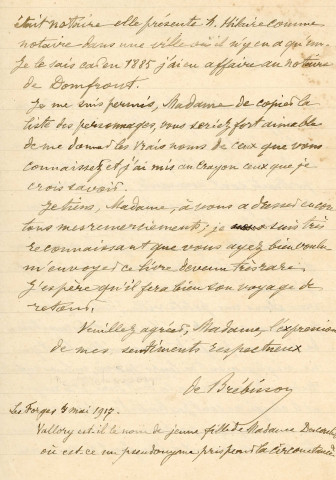 était notaire elle présente St Hilaire comme
notaire dans une ville où il n'y en a qu'un.
Je le sais car en 1885 j'ai eu affaire au notaire
de Domfront.
Je me suis permis, Madame de copier la
liste des personnages, vous seriez fort aimable
de me donner les vrais noms de ceux que vous
connaissez et j'ai mis au crayon ceux que je
crois savoir.
Je tiens, Madame, à vous adresser encore
tous mes remerciements, je suis très
reconnaissant que vous ayez bien voulu
m'envoyer ce livre devenu très rare
J'espère qu'il fera bien son voyage de
retour.
Veuillez agréer, Madame, l'expression
de mes sentiments respectueux
de Brébisson
Les Forges 4 mai 1917.
Vallory est-il le nom de jeune fille de Madame
où est-ce un pseudonyme pris pour la circonstance